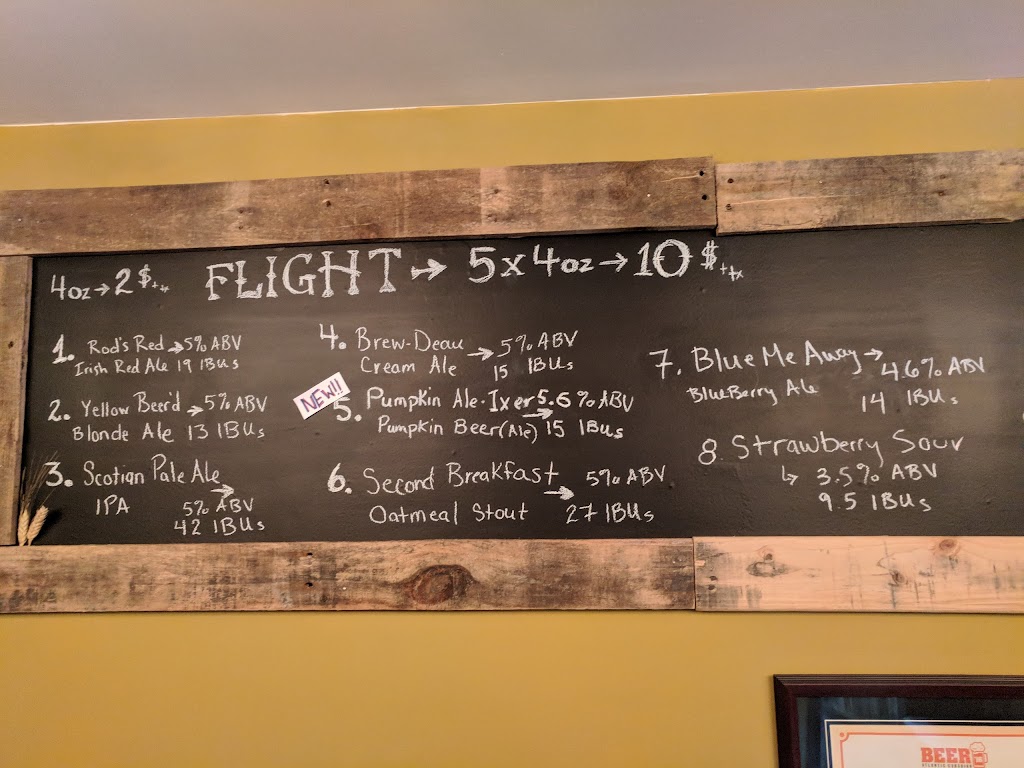 4oz→2$+tx
FLIGHT→ 5x4oz→10$+tx
1. Rod's Red →5% ABV
Irish Red Ale 19 IBUs
2. Yellow Beer'd →5% ABV
Blonde Ale 13 IBUs
3. Scotian Pale Ale →
IPA 5% ABV
42 IBUs
4. Brew-Deau → 5% ABV
Cream Ale 15 IBUs
NEW!!
5. Pumpkin Ale·Ixer → 5.6% ABV
Pumpkin Beer (Ale) 15 IBUs
6. Second Breakfast → 5% ABV
Oatmeal Stout 27 IBUs
7. Blue Me Away → 4.6% ABV
BlueBerry Ale 14 IBUs
8. Strawberry Sour
↳ 3.5% ABV
9.5 IBUs
BEER